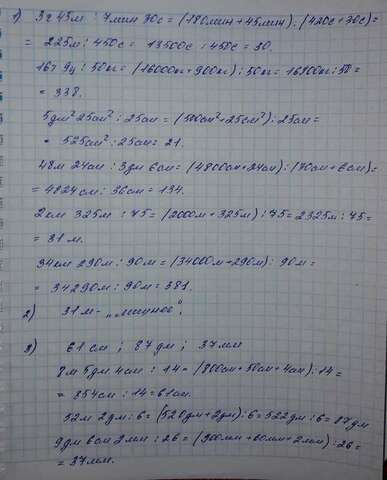 1) 3ч 45м : 7мин 30с = (180мин + 45мин) : (420с + 30с) =
= 225м : 450с = 13500с : 450с = 30.
16т 9ц : 50кг = (16000кг + 900кг) : 50кг = 16900кг : 50 =
= 338.
5дм² 25см² : 25см = (500см² + 25см²) : 25см =
= 525см² : 25см = 21.
48м 24см : 3дм 6см = (4800см + 24см) : (30см + 6см) =
= 4824см : 36см = 134.
2км 325м : 75 = (2000м + 325м) : 75 = 2325м : 75 =
= 31 м.
34км 290м : 90м = (34000м + 290м) : 90м =
= 34290м : 90м = 381.
2) 31м - „лишнее“;
3) 61 см ; 87 дм ; 37мм
8м 5дм 4см : 14 = (800см + 50см + 4см) : 14 =
= 854см : 14 = 61см.
52м 2дм : 6 = (520дм + 2дм) : 6 = 522дм : 6 = 87дм
9дм 6см 2мм : 26 = (900мм + 60мм + 2мм) : 26 =
= 37мм.